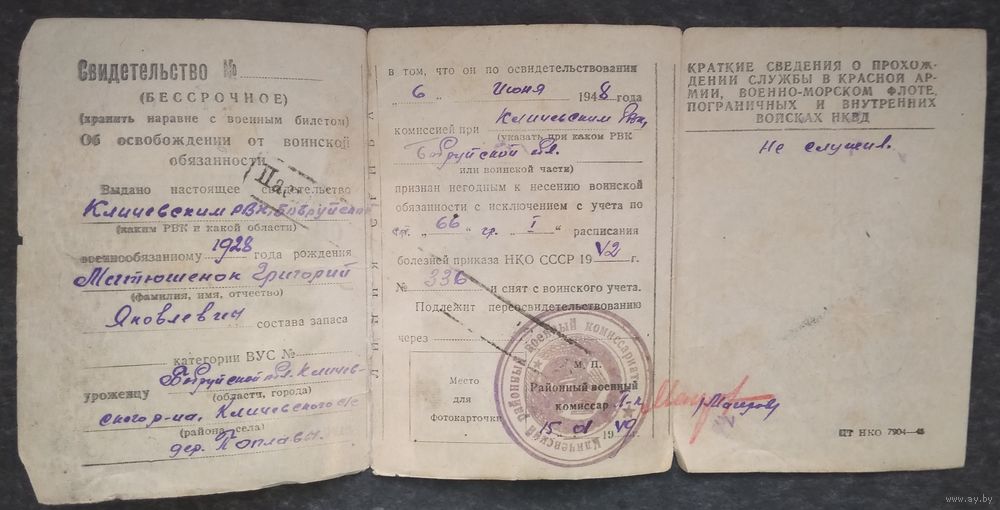 Свидетельство №
(БЕССРОЧНОЕ)
(хранить наравне с военным билетом)
Об освобождении от воинской
обязанности
Выдано настоящее свидетельство
Кличевским РВК, Бобруйской
(каким РВК и какой области)
военнообязанному 1928 года рождения
Матюшенок Григорий
(фамилия, имя, отчество)
Яковлевич состава запаса
категории ВУС №
уроженцу Бобруйской обл. Кличев-
(области, города)
ского р-на, Кличевского с/с
(района, села)
дер. Поплавы.
в том, что он по освидетельствования
„ 6 “ Июня 1948 года
комиссией при Кличевским РВК,
(указать при каком РВК
Бобруйской обл.
или воинской части)
признан негодным к несению воинской
обязанности с исключением с учета по
ст. „ 66 “ гр. „ I “ расписания
болезней приказа НКО СССР 1942 г.
№ 336 и снят с воинского учета.
Подлежит переосвидетельствованию
через
Место
для
Фотокарточки
М. П.
Районный военный
комиссар
15 01 1949
Кличевский районный военный комиссариат
КРАТКИЕ СВЕДЕНИЯ О ПРОХОЖ-
ДЕНИИ СЛУЖБЫ В КРАСНОЙ АР-
МИИ, ВОЕННО-МОРСКОМ ФЛОТЕ,
ПОГРАНИЧНЫХ И ВНУТРЕННИХ
ВОЙСКАХ НКВД
Не служил.
ЦТ НКО 7904—45
www.ay.by